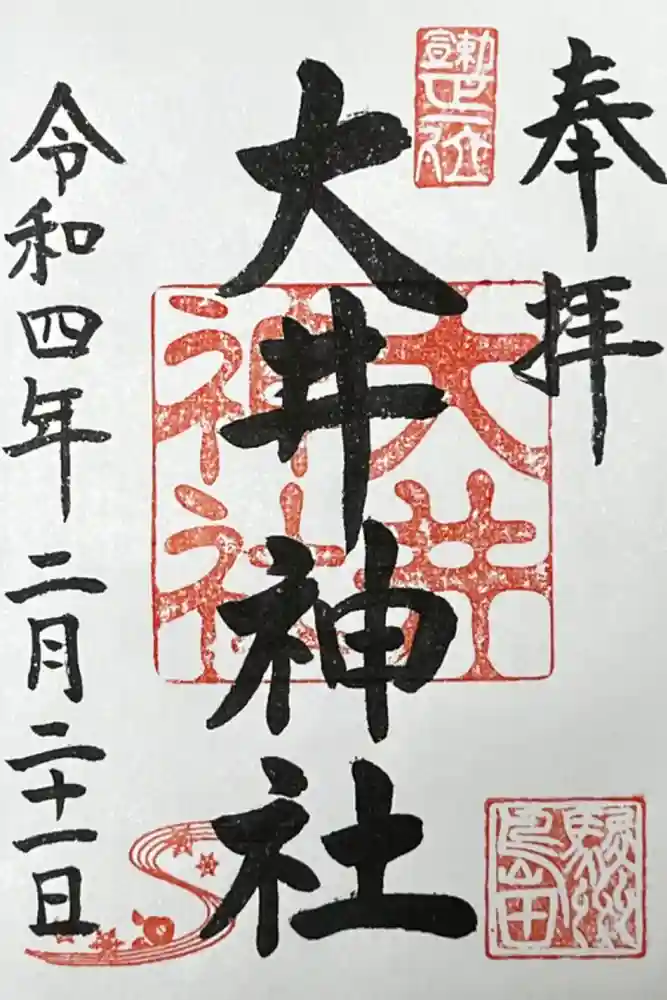 奉拝
大井神社
大井神社
駿州島田
令和四年二月二十一日